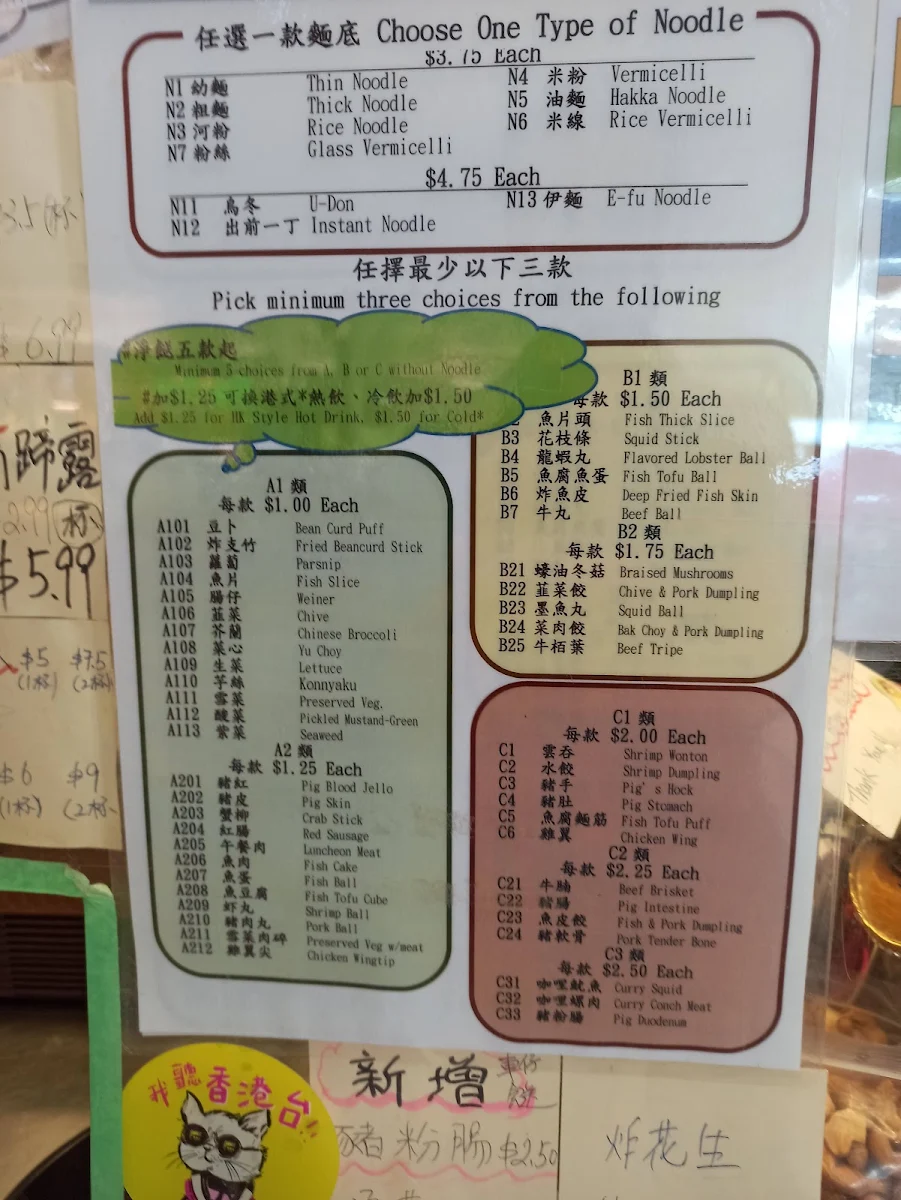 任選一款麵底 Choose One Type of Noodle
$3.75 Each
N1 幼麵 Thin Noodle
N2 粗麵 Thick Noodle
N3 河粉 Rice Noodle
N7 粉絲 Glass Vermicelli
N4 米粉 Vermicelli
N5 油麵 Hakka Noodle
N6 米線 Rice Vermicelli
$4.75 Each
N11 烏冬 U-Don
N12 出前一丁 Instant Noodle
N13 伊麵 E-fu Noodle
任擇最少以下三款
Pick minimum three choices from the following
#淨餸五款起
Minimum 5 choices from A, B or C without Noodle
#加$1.25 可換港式*熱飲、冷飲加$1.50
Add $1.25 for HK Style Hot Drink, $1.50 for Cold*
A1 類
每款 $1.00 Each
A101 豆卜 Bean Curd Puff
A102 炸支竹 Fried Beancurd Stick
A103 蘿蔔 Parsnip
A104 魚片 Fish Slice
A105 腸仔 Weiner
A106 韮菜 Chive
A107 芥蘭 Chinese Broccoli
A108 菜心 Yu Choy
A109 生菜 Lettuce
A110 芋絲 Konnyaku
A111 雪菜 Preserved Veg.
A112 酸菜 Pickled Mustand-Green
A113 紫菜 Seaweed
A2 類
每款 $1.25 Each
A201 豬紅 Pig Blood Jello
A202 豬皮 Pig Skin
A203 蟹柳 Crab Stick
A204 紅腸 Red Sausage
A205 午餐肉 Luncheon Meat
A206 魚肉 Fish Cake
A207 魚蛋 Fish Ball
A208 魚豆腐 Fish Tofu Cube
A209 虾丸 Shrimp Ball
A210 豬肉丸 Pork Ball
A211 雪菜肉碎 Preserved Veg w/meat
A212 雞翼尖 Chicken Wingtip
B1 類
每款 $1.50 Each
魚片頭 Fish Thick Slice
B3 花枝條 Squid Stick
B4 龍蝦丸 Flavored Lobster Ball
B5 魚腐魚蛋 Fish Tofu Ball
B6 炸魚皮 Deep Fried Fish Skin
B7 牛丸 Beef Ball
B2 類
每款 $1.75 Each
B21 蠔油冬菇 Braised Mushrooms
B22 韮菜餃 Chive & Pork Dumpling
B23 墨魚丸 Squid Ball
B24 菜肉餃 Bak Choy & Pork Dumpling
B25 牛栢葉 Beef Tripe
C1 類
每款 $2.00 Each
C1 雲吞 Shrimp Wonton
C2 水餃 Shrimp Dumpling
C3 豬手 Pig's Hock
C4 豬肚 Pig Stomach
C5 魚腐麵筋 Fish Tofu Puff
C6 雞翼 Chicken Wing
C2 類
每款 $2.25 Each
C21 牛腩 Beef Brisket
C22 豬腸 Pig Intestine
C23 魚皮餃 Fish & Pork Dumpling
C24 豬軟骨 Pork Tender Bone
C3 類
每款 $2.50 Each
C31 咖哩魷魚 Curry Squid
C32 咖哩螺肉 Curry Conch Meat
C33 豬粉腸 Pig Duodenum
$6.99
蹄露
2.99 (杯)
$5.99
$5 $7.5
(1杯) (2杯)
$6 $9
(1杯) (2杯)
Thank You!
我聽香港台
新增 車仔
豬粉腸 $2.50
炸花生